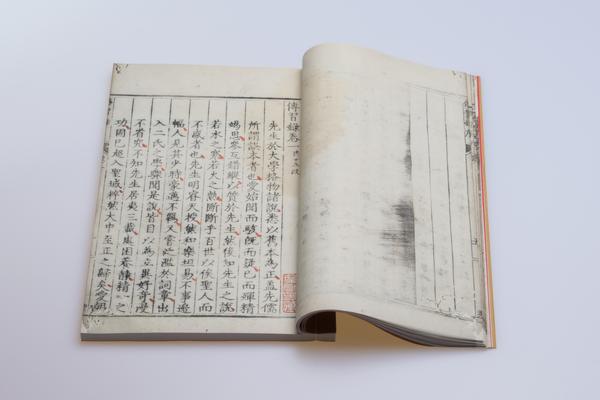 傳習錄卷一
先生於大學格物諸說悉以舊本為正蓋先儒
所謂誤本者也愛始聞而駭既而疑已而殫精
竭思參互錯縱以質於先生然後知先生之說
若水之寒若火之熱斷斷乎百世以俟聖人而
不惑者也先生明睿天授然和樂坦易不事邊
幅人見其少時豪邁不羈又嘗泛濫於詞章出
入二氏之學驟聞是說皆目以為立異好奇漫
不省究不知先生居夷三載處困養靜精一之
功固已超入聖域粹然大中至正之歸矣愛朝